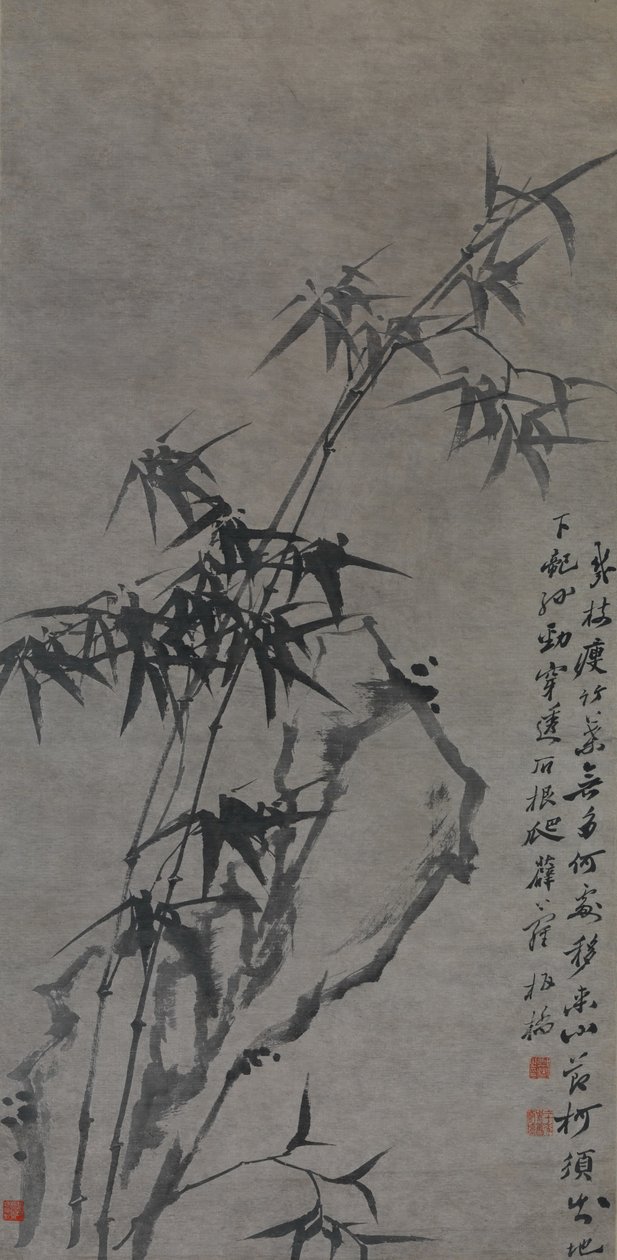 幾枝瘦竹葉無多何處移來小節柯須出地
下䡄孙勁穿透石根爬薜蘿 板橋